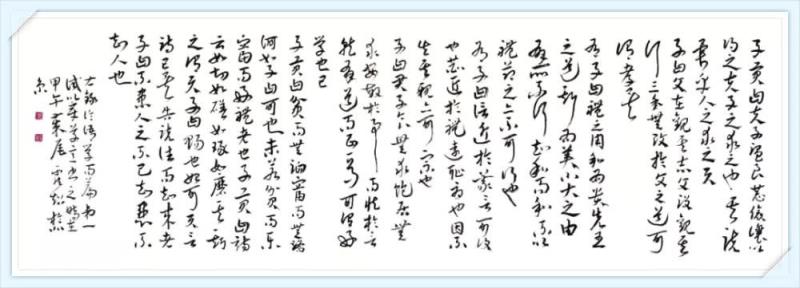 子貢曰夫子溫良恭儉讓以
得之夫子之求之也其諸
異乎人之求之與
子曰父在觀其志父沒觀其
行三年無改於父之道可
謂孝矣
有子曰禮之用和為貴先王
之道斯為美小大之由
有所不行知和而和不以
禮節之亦不可行也
有子曰信近於義言可復
也恭近於禮遠恥辱也因不
失其親亦可宗也
子曰君子食無求飽居無
求安敏於事而慎於言
就有道而正焉可謂好
學也已
子貢曰貧而無諂富而無驕
何如子曰可也未若貧而樂
富而好禮者也子貢曰詩
云如切如磋如琢如磨其斯
之謂與子曰賜也始可與言
詩已矣告諸往而知來者
子曰不患人之不己知患不
知人也
右錄論語學而篇
甲午